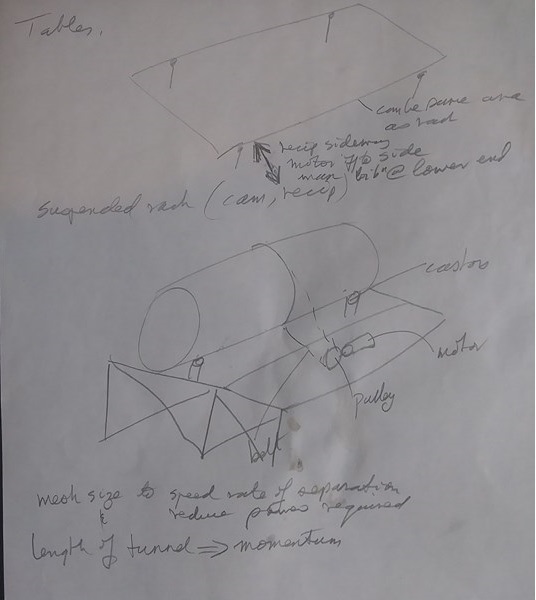 Tables.
can be same area
as rack
recip sideways
motor @ side
max "bib" @ lower end
Suspended rack (cam, recip)
castors
motor
pulley
belt
mesh size to speed rate of separation
& reduce power required
length of tunnel => momentum